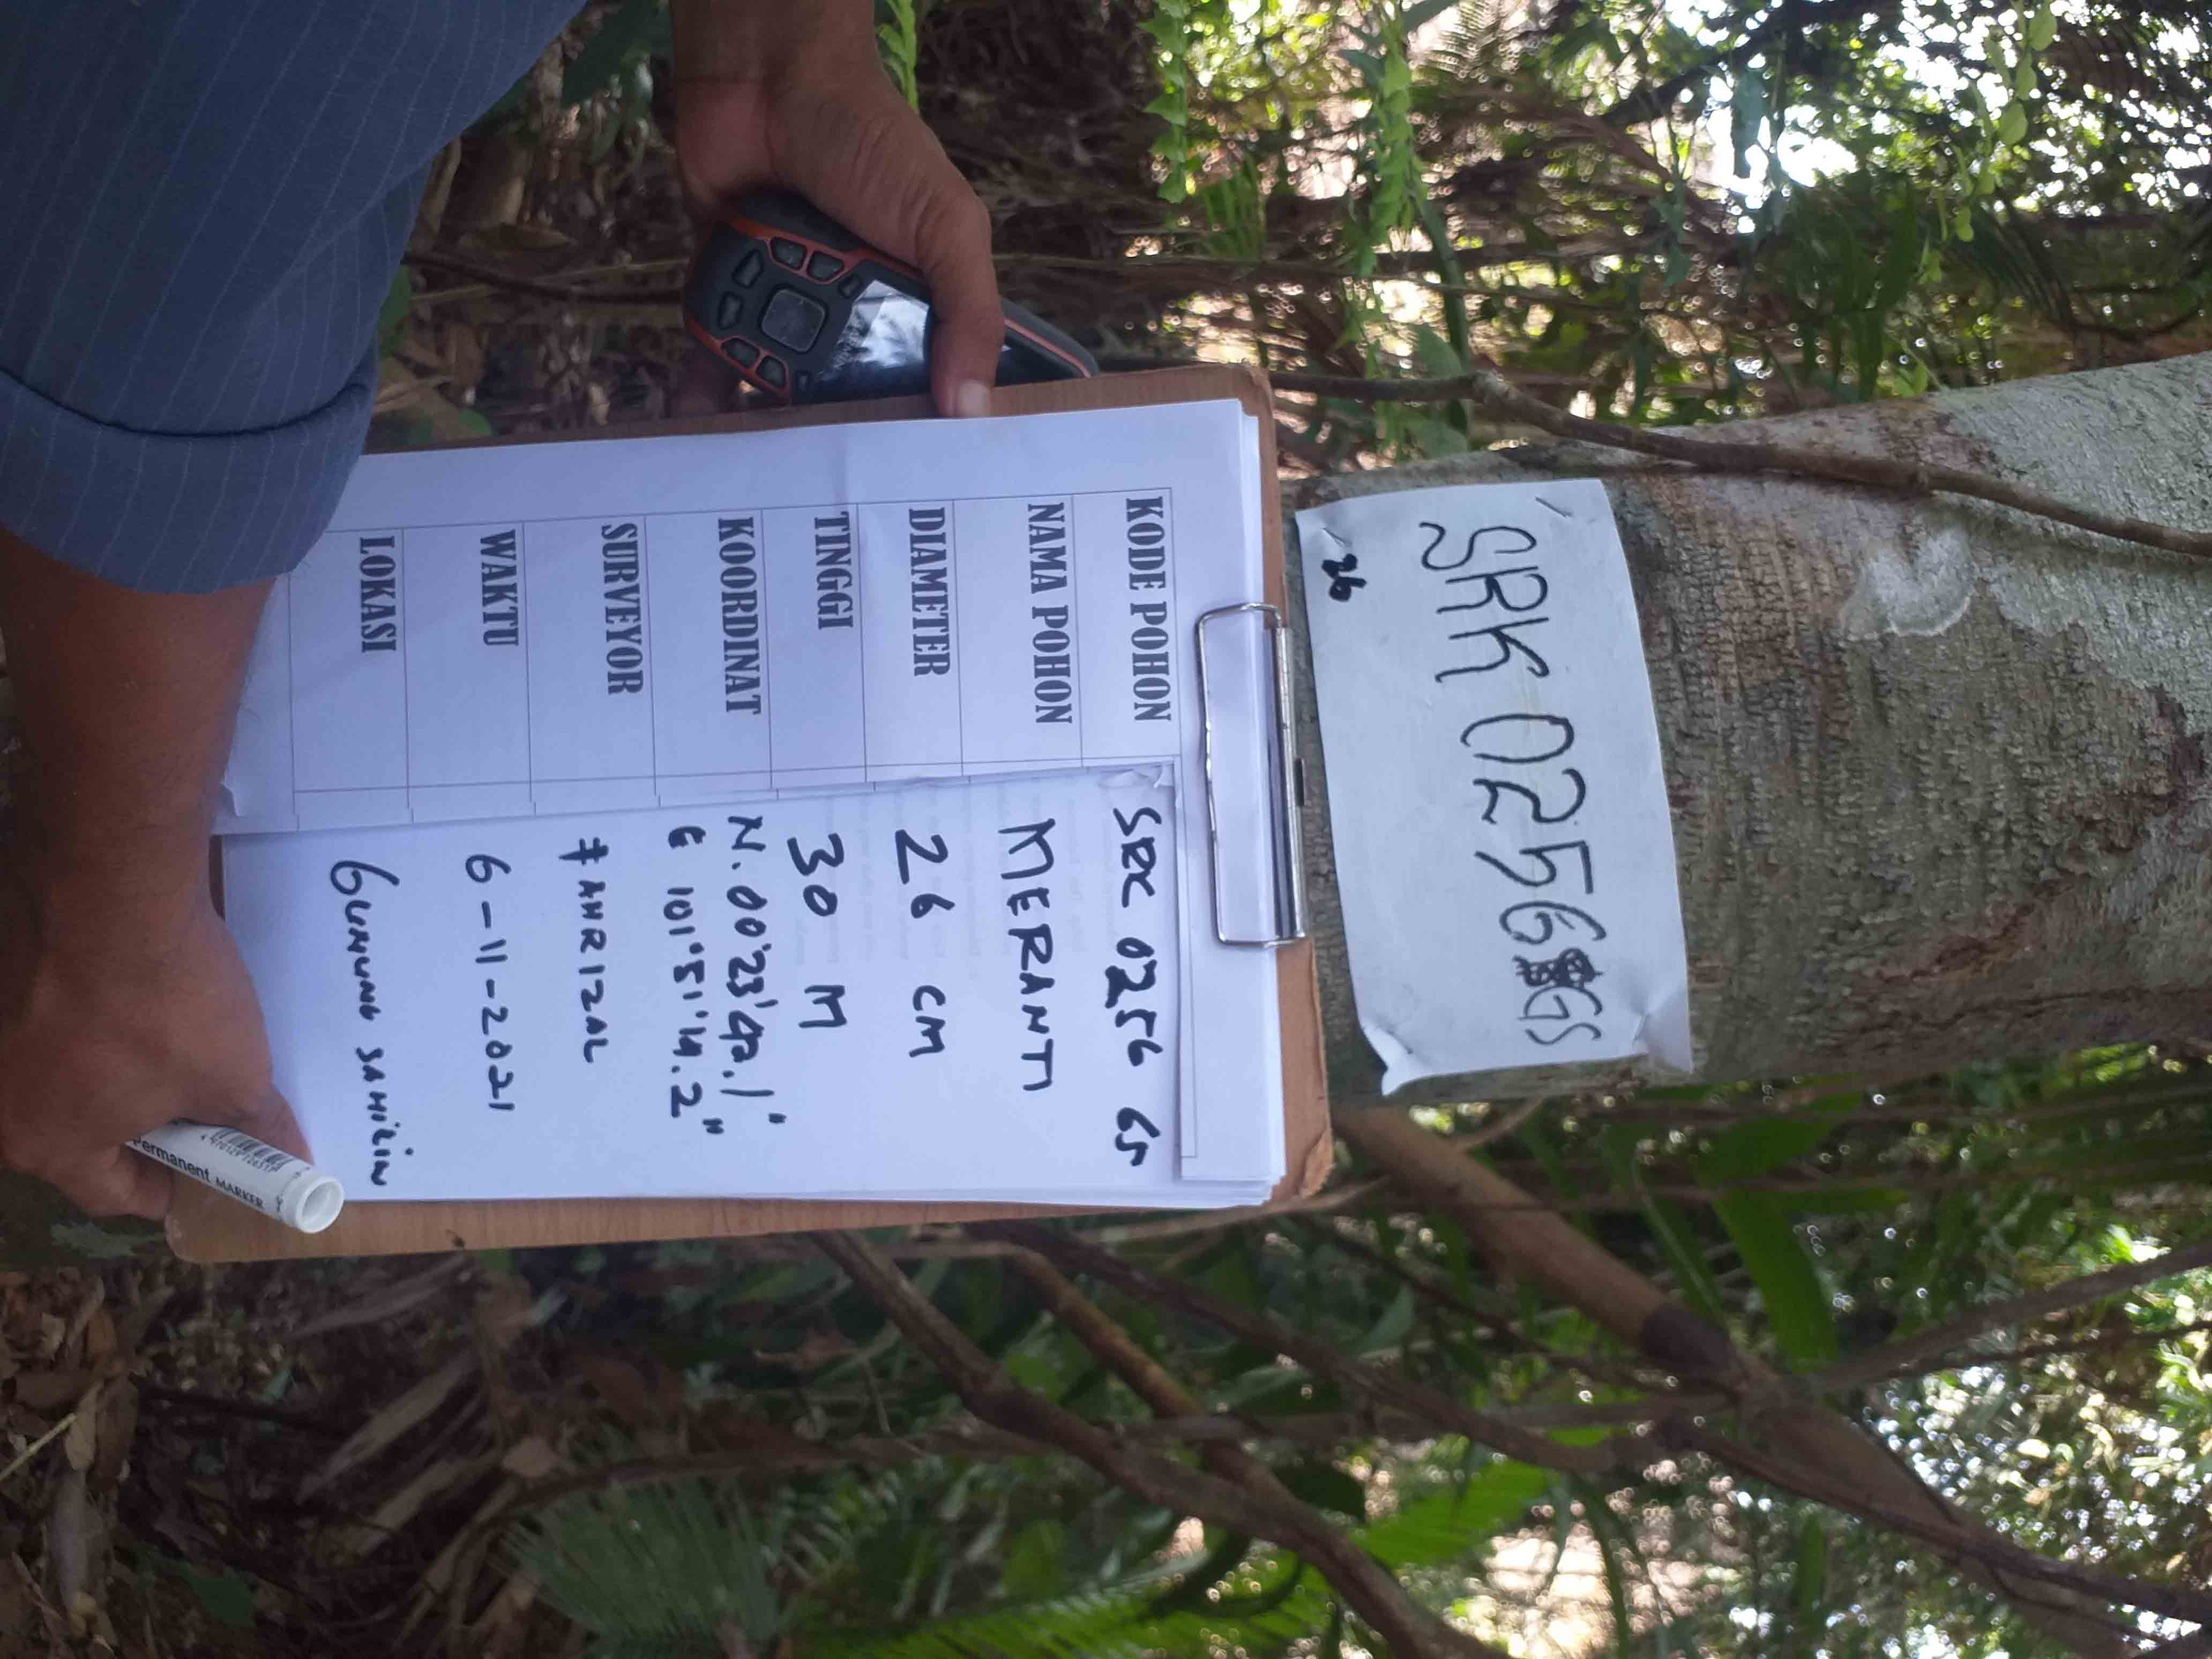 SRK 0256 GS
26
KODE POHON SRK 0256 GS
NAMA POHON MERANTI
DIAMETER 26 CM
TINGGI 30 M
KOORDINAT N. 00°23'42.1"
E 101°51'14.2"
SURVEYOR FAHRIZAL
WAKTU 6-11-2021
LOKASI GUNUNG SAHILIN
Permanent MARKER